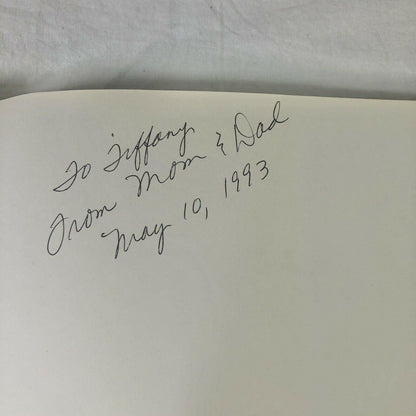 To Tiffany
From Mom & Dad
May 10, 1993